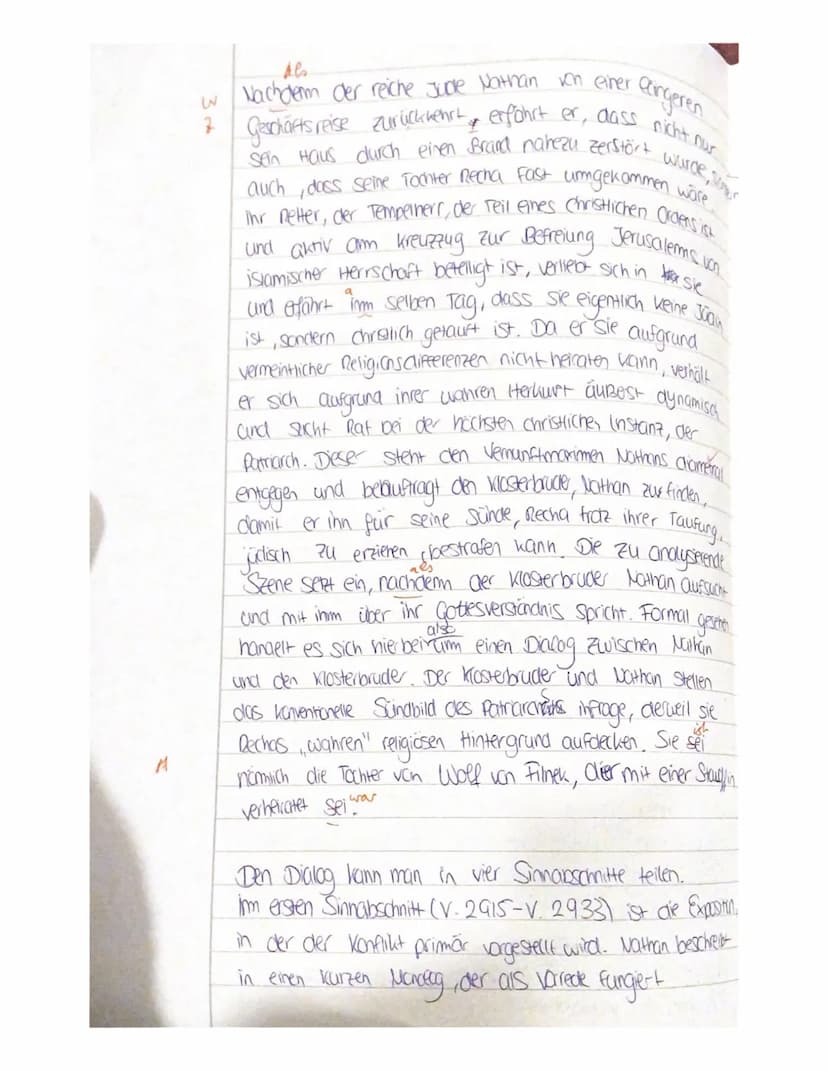 Als
W Nachdem der reiche Jude Nathan von einer längeren
Z Geschäftsreise zurückkehrt, erfährt er, dass nicht nur
sein Haus durch einen Brand nahezu zerstört wurde, sondern
auch, dass seine Tochter Recha fast umgekommen wäre.
Ihr Retter, der Tempelherr, der Teil eines christlichen Ordens ist
und aktiv am Kreuzzug zur Befreiung Jerusalems von
islamischer Herrschaft beteiligt ist, verliebt sich in sie
und erfährt am selben Tag, dass sie eigentlich keine Jüdin
ist, sondern christlich getauft ist. Da er sie aufgrund
vermeintlicher Religionsdifferenzen nicht heiraten kann, verhält
er sich aufgrund ihrer wahren Herkunft äußerst dynamisch
und sucht Rat bei der höchsten christlichen Instanz, der
Patriarch. Dieser steht den Vernunftmaximen Nathans diametral
entgegen und beauftragt den Klosterbruder, Nathan zu finden,
damit er ihn für seine Sünde, Recha trotz ihrer Taufung,
jüdisch zu erziehen, bestrafen kann. Die zu analysierende
als
Szene setzt ein, nachdem der Klosterbruder Nathan aufsucht
und mit ihm über ihr Gottesverständnis spricht. Formal gesehen
also
handelt es sich hierbei um einen Dialog zwischen Nathan
und den Klosterbruder. Der Klosterbruder und Nathan stellen
das konventionelle Sündbild des Patriarchats infrage, derweil sie
ist
Rechas „wahren" religiösen Hintergrund aufdecken. Sie sei
M nämlich die Tochter von Wolf von Filnek, der mit einer Stauffin
war
verheiratet sei.
Den Dialog kann man in vier Sinnabschnitte teilen.
Im ersten Sinnabschnitt (V. 2915-V. 2933) ist die Exposition,
in der der Konflikt primär vorgestellt wird. Nathan beschreibt
in einen kurzen Monolog, der als Vorrede fungiert